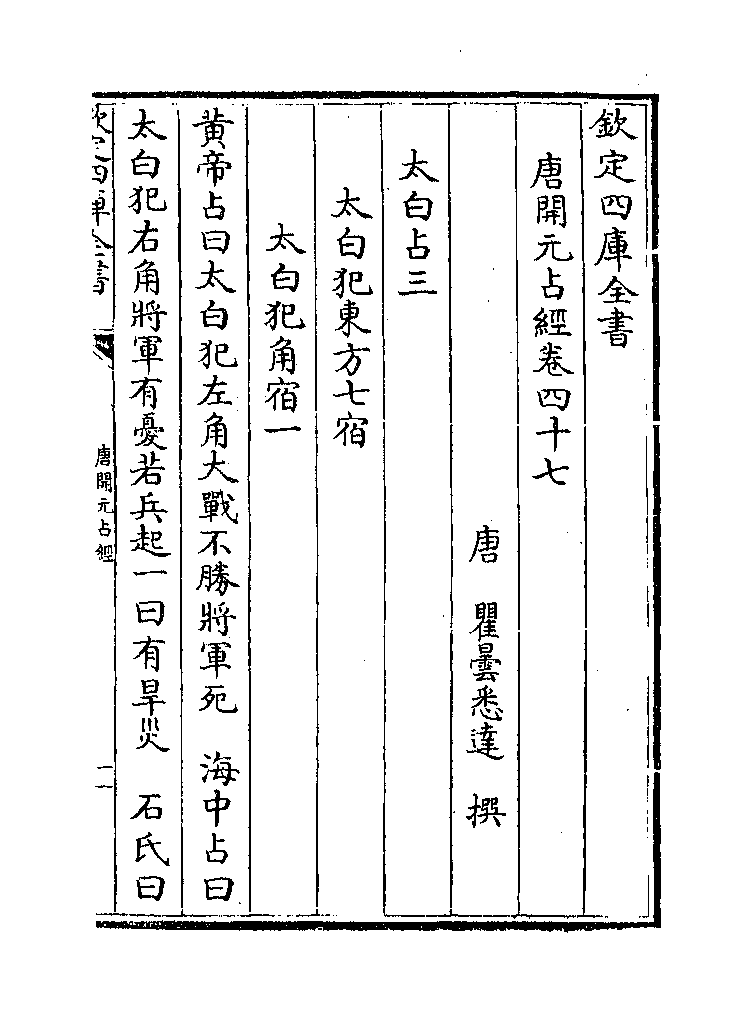 欽定四庫全書
唐開元占經卷四十七
唐　瞿曇悉達　撰
太白占三
太白犯東方七宿
太白犯角宿一
黃帝占曰太白犯左角大戰不勝將軍死　海中占曰
太白犯右角將軍有憂若兵起一曰有旱災　石氏曰
欽定四庫全書
唐開元占經